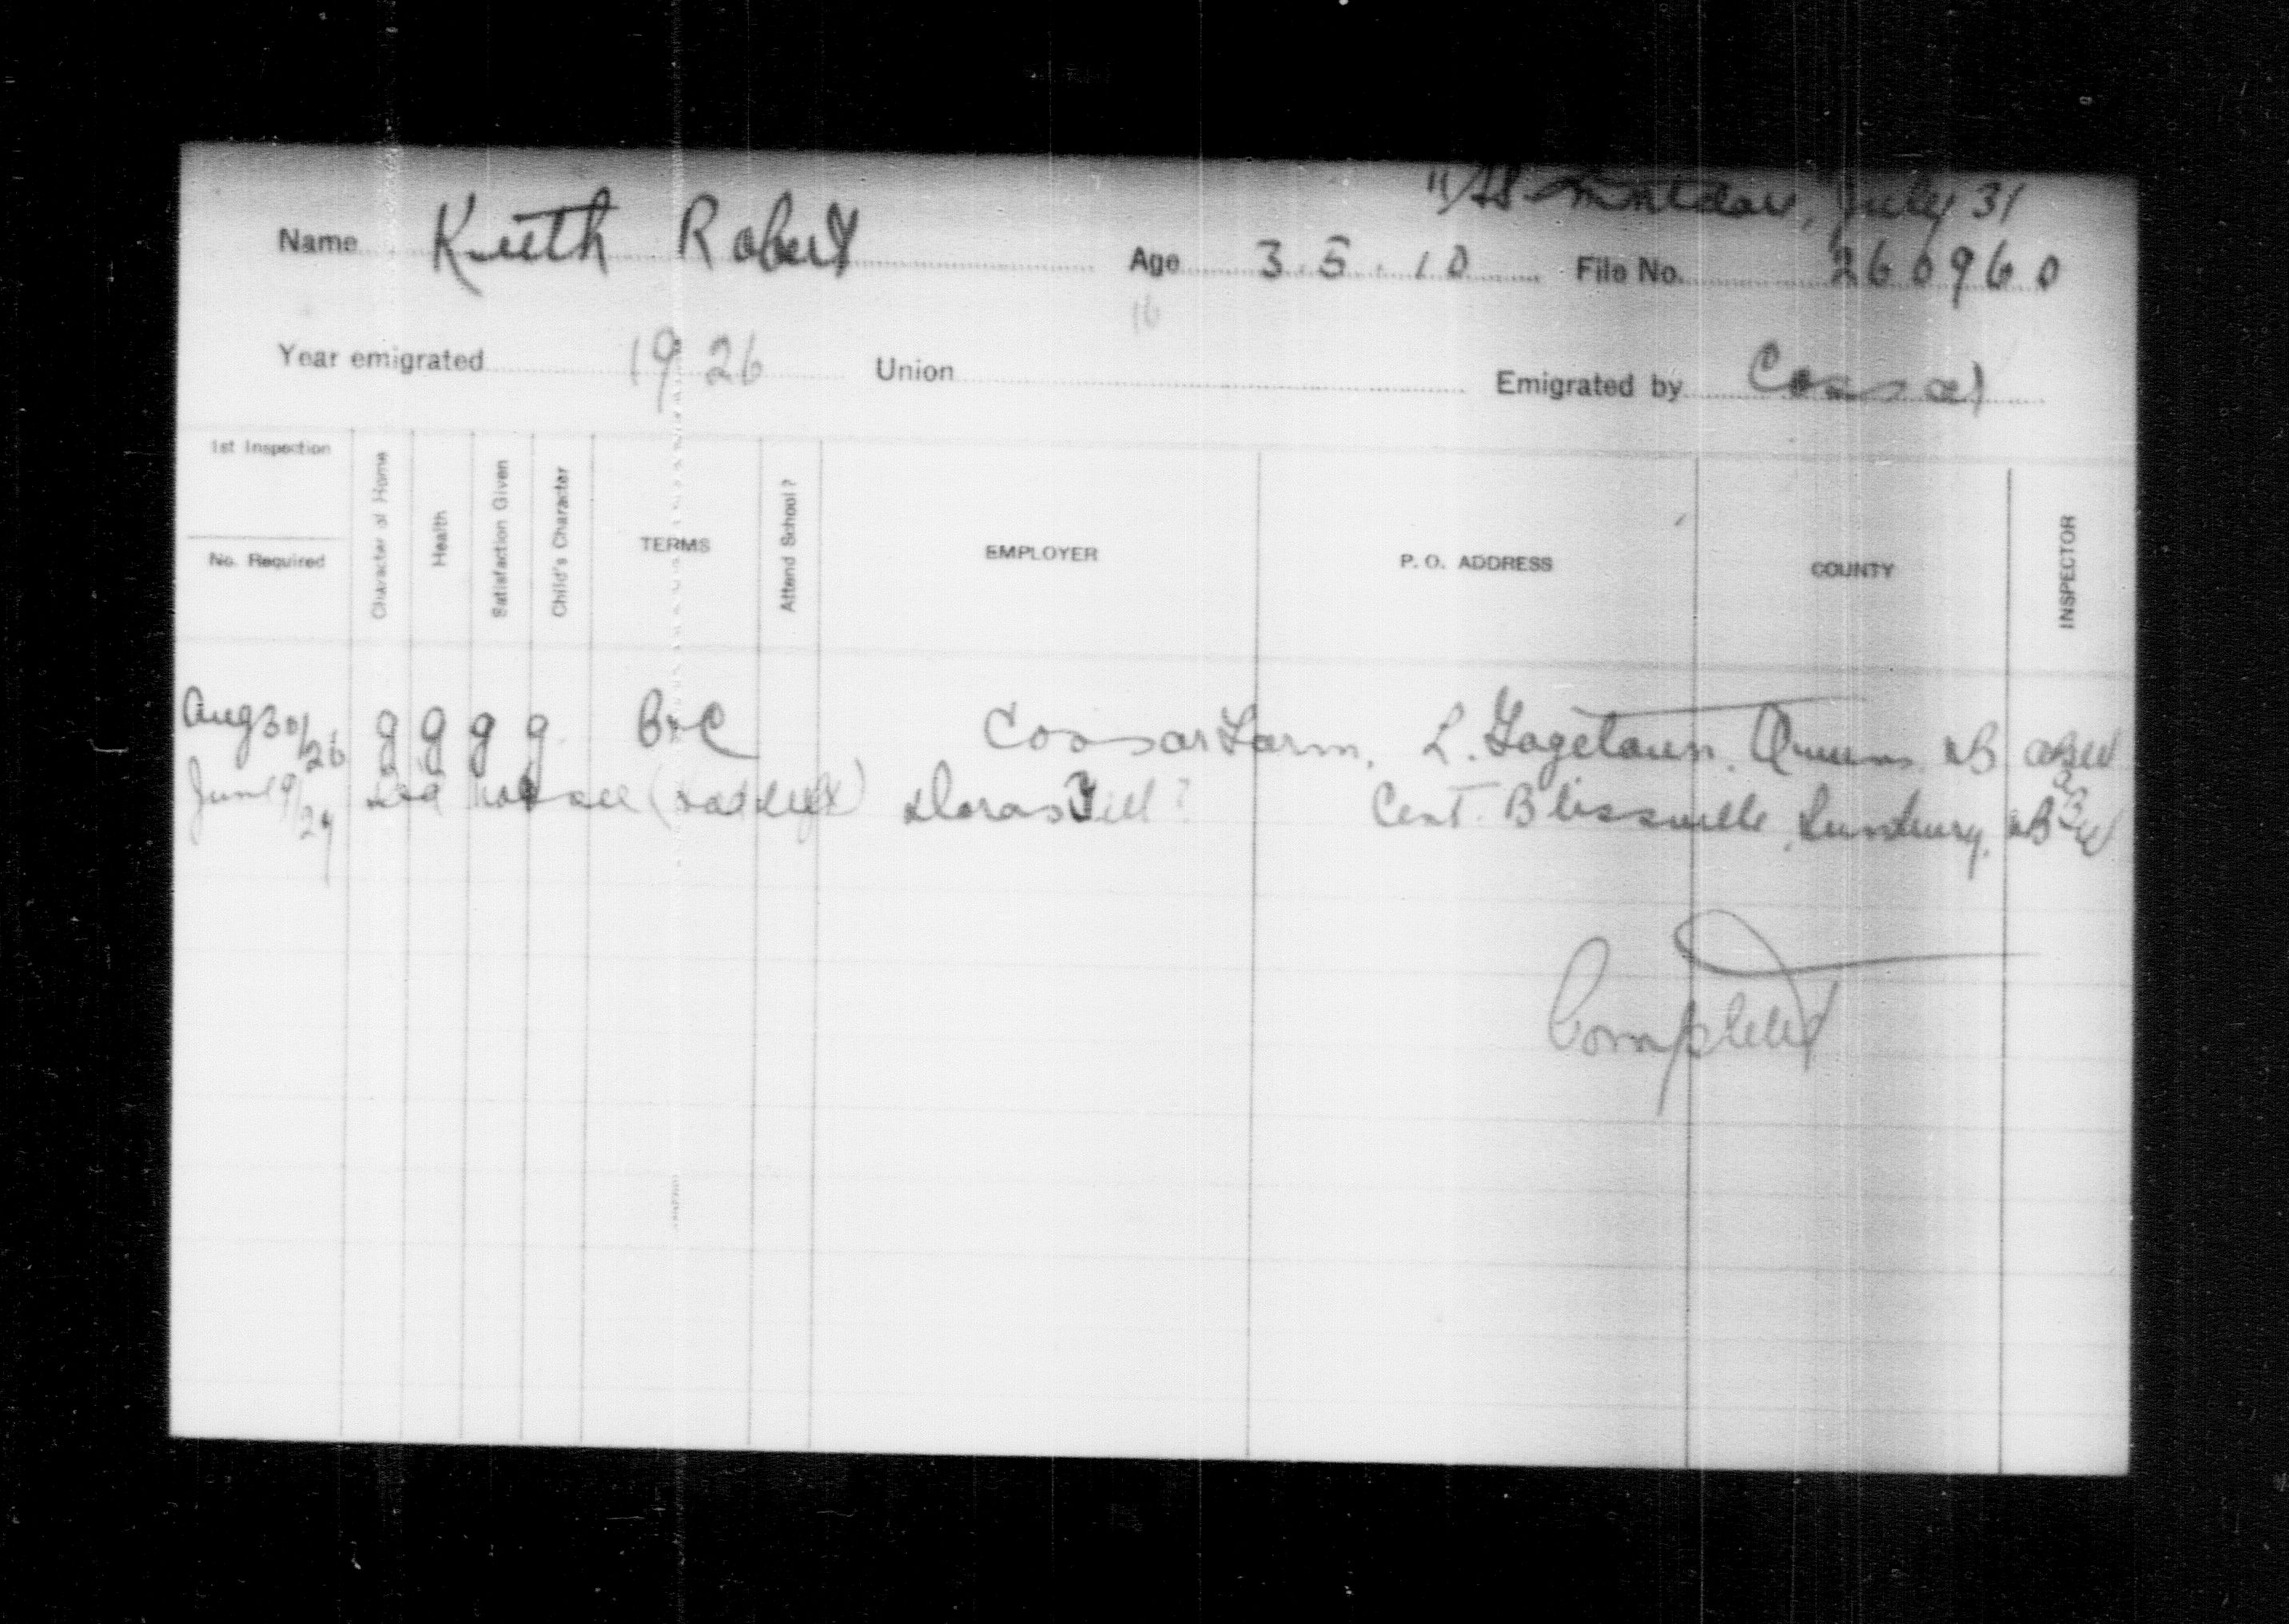 July 31
Name Keith Robert Age 3.5.10 File No. 260960
16
Year emigrated 1926 Union Emigrated by Cossar
1st Inspection
No. Required
Character of Home
Health
Satisfaction Given
Child's Character
TERMS
Attend School?
EMPLOYER
P. O. ADDRESS
COUNTY
INSPECTOR
Aug 30/26 g g g g B+C Cossar Farm, L. Gagetown, Queens NB
June 9/29 Did not see (had left) Cent. Blissville, Sunbury, NB
Completed